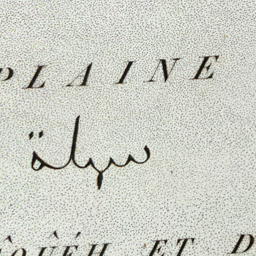 PLAINE
سهلة
ÔÛÉH ET D